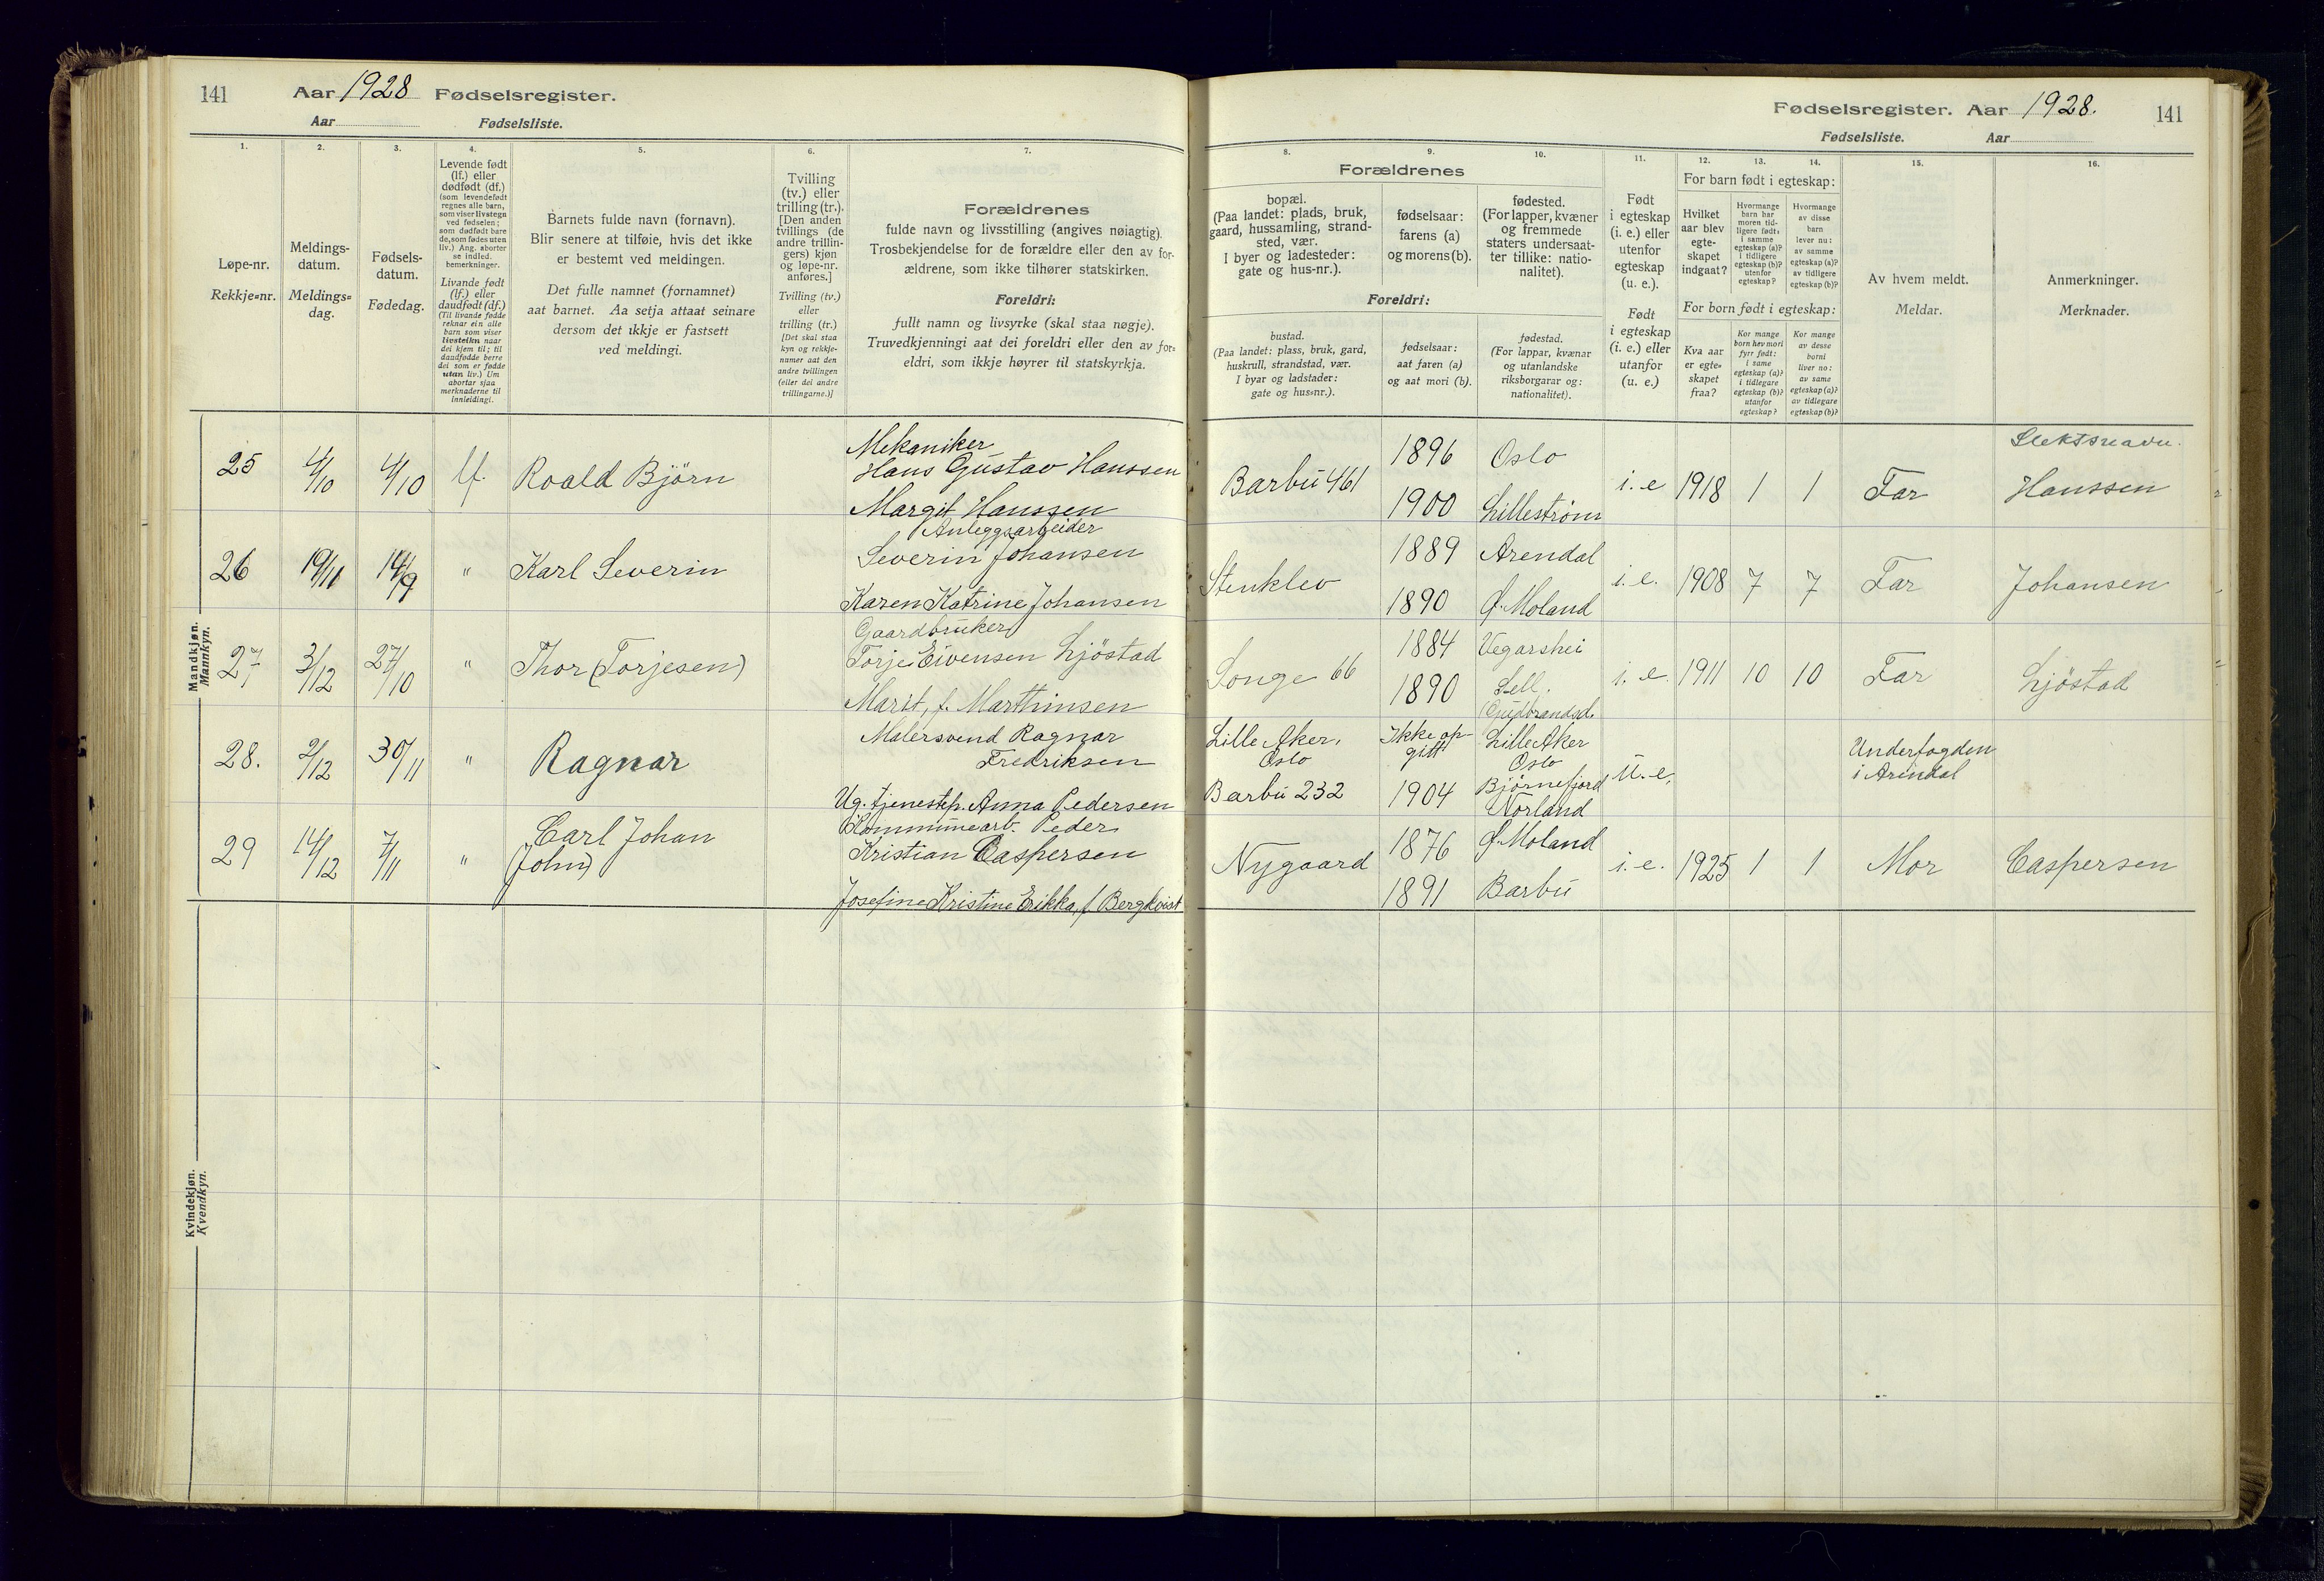 141 Aar 1928 Fødselsregister.
Aar Fødselsliste.
Fødselsregister. Aar 1928. 141
Fødselsliste. Aar
1. 2. 3. 4. 5. 6. 7.
Løpe-nr.
Rekkje=nr.
Meldings-
datum.
Meldings=
dag.
Fødsels-
datum.
Fødedag.
Levende født
(lf.) eller
dødfødt (df.)
(som levendefødt
regnes alle barn,
som viser livstegn
ved fødselen;
som dødfødt bare
de, som fødes uten
liv.) Ang. aborter
se indled.
bemerkninger.
Livande født
(lf.) eller
daudfødt (df.)
(Til livande fødde
reknar ein alle
barn som viser
livsteikn naar
dei kjem til; til
daudfødde berre
dei som er fødde
utan liv.) Um
abortar sjaa
merknaderne til
innleidingi.
Barnets fulde navn (fornavn).
Blir senere at tilføie, hvis det ikke
er bestemt ved meldingen.
Det fulle namnet (fornamnet)
aat barnet. Aa setja attaat seinare
dersom det ikkje er fastsett
ved meldingi.
Tvilling
(tv.) eller
trilling (tr.).
[Den anden
tvillings (de
andre trillin-
gers) kjøn
og løpe-nr.
anføres.]
Tvilling (tv.)
eller
trilling (tr.)
[Det skal staa
kyn og rekkje-
numer aat den
andre tvillingen
(eller dei andre
trillingarne.)]
Forældrenes
fulde navn og livsstilling (angives nøiagtig).
Trosbekjendelse for de forældre eller den av for-
ældrene, som ikke tilhører statskirken.
Foreldri:
fullt namn og livsyrke (skal staa nøgje).
Truvedkjenningi aat dei foreldri eller den av for=
eldri, som ikkje høyrer til statskyrkja.
8. 9. 10. 11. 12. 13. 14. 15. 16.
Forældrenes
bopæl.
(Paa landet: plads, bruk,
gaard, hussamling, strand-
sted, vær.
I byer og ladesteder:
gate og hus-nr.).
fødselsaar:
farens (a)
og morens (b).
fødested.
(For lapper, kvæner
og fremmede
staters undersaat-
ter tillike: natio-
nalitet).
Foreldri:
bustad.
(Paa landet: plass, bruk, gard,
huskrull, strandstad, vær.
I byar og ladstader:
gate og hus=nr.).
fødselsaar:
aat faren (a)
og aat mori (b).
fødestad.
(For lappar, kvænar
og utanlandske
riksborgarar og:
nationalitet).
Født
i egteskap
(i. e.) eller
utenfor
egteskap
(u. e.).
Født
i egteskap
(i. e.) eller
utanfor
egteskap
(u. e.)
For barn født i egteskap:
Hvilket
aar blev
egte-
skapet
indgaat?
Hvormange
barn har
moren tid-
ligere født:
i samme
egteskap (a)?
i tidligere
egteskap (b)?
utenfor
egteskap?
Hvormange
av disse
barn
lever nu:
av samme
egteskap (a)?
av tidligere
egteskap (b)?
For born født i egteskap:
Kva aar
er egte=
skapet
fraa?
Kor mange
born hev mori
fyrr født:
i same
egteskap (a)?
i tidlegare
egteskap (b)?
utanfor
egteskap?
Kor mange
av desse
borni
liver no:
av same
egteskap (a)?
av tidlegare
egteskap (b)?
Av hvem meldt.
Meldar.
Anmerkninger.
Merknader.
Mandkjøn.
Mannkyn.
25 4/10 4/10 lf. Roald Bjørn
Mekaniker
Hans Gustav Hanssen
Margit Hanssen
Barbu 461
1896 Oslo
1900 Lillestrøm
i. e 1918 1 1 Far
Slektsnavn.
Hanssen
26 19/11 14/9 " Karl Severin
Anleggsarbeider
Severin Johansen
Karen Katrine Johansen
Stenklev
1889 Arendal
1890 Ø. Moland
i. e. 1908 7 7 Far Johansen
27 3/12 27/10 " Thor (Torjesen)
Gaardbruker
Torje Eivensen Ljøstad
Marit, f. Marthinsen
Songe 66
1884 Vegarshei
1890 Sell,
Gudbrandsd.
i. e. 1911 10 10 Far Ljøstad
28. 2/12 30/11 " Ragnar
Malersvend Ragnar
Fredriksen
Ug. tjenestep. Anna Pedersen
Lille Aker,
Oslo
Barbu 232
Ikke op-
gitt
1904
Lille Aker
Oslo
Bjørnefjord
Norland
u. e.
Underfogden
i Arendal
29 14/12 7/11 "
Carl Johan
(John)
Kommunearb. Peder
Kristian Caspersen
Josefine Kristine Erikka, f. Bergkvist
Nygaard
1876 Ø. Moland
1891 Barbu
i. e. 1925 1 1 Mor Caspersen
Kvindekjøn.
Kvendkyn.